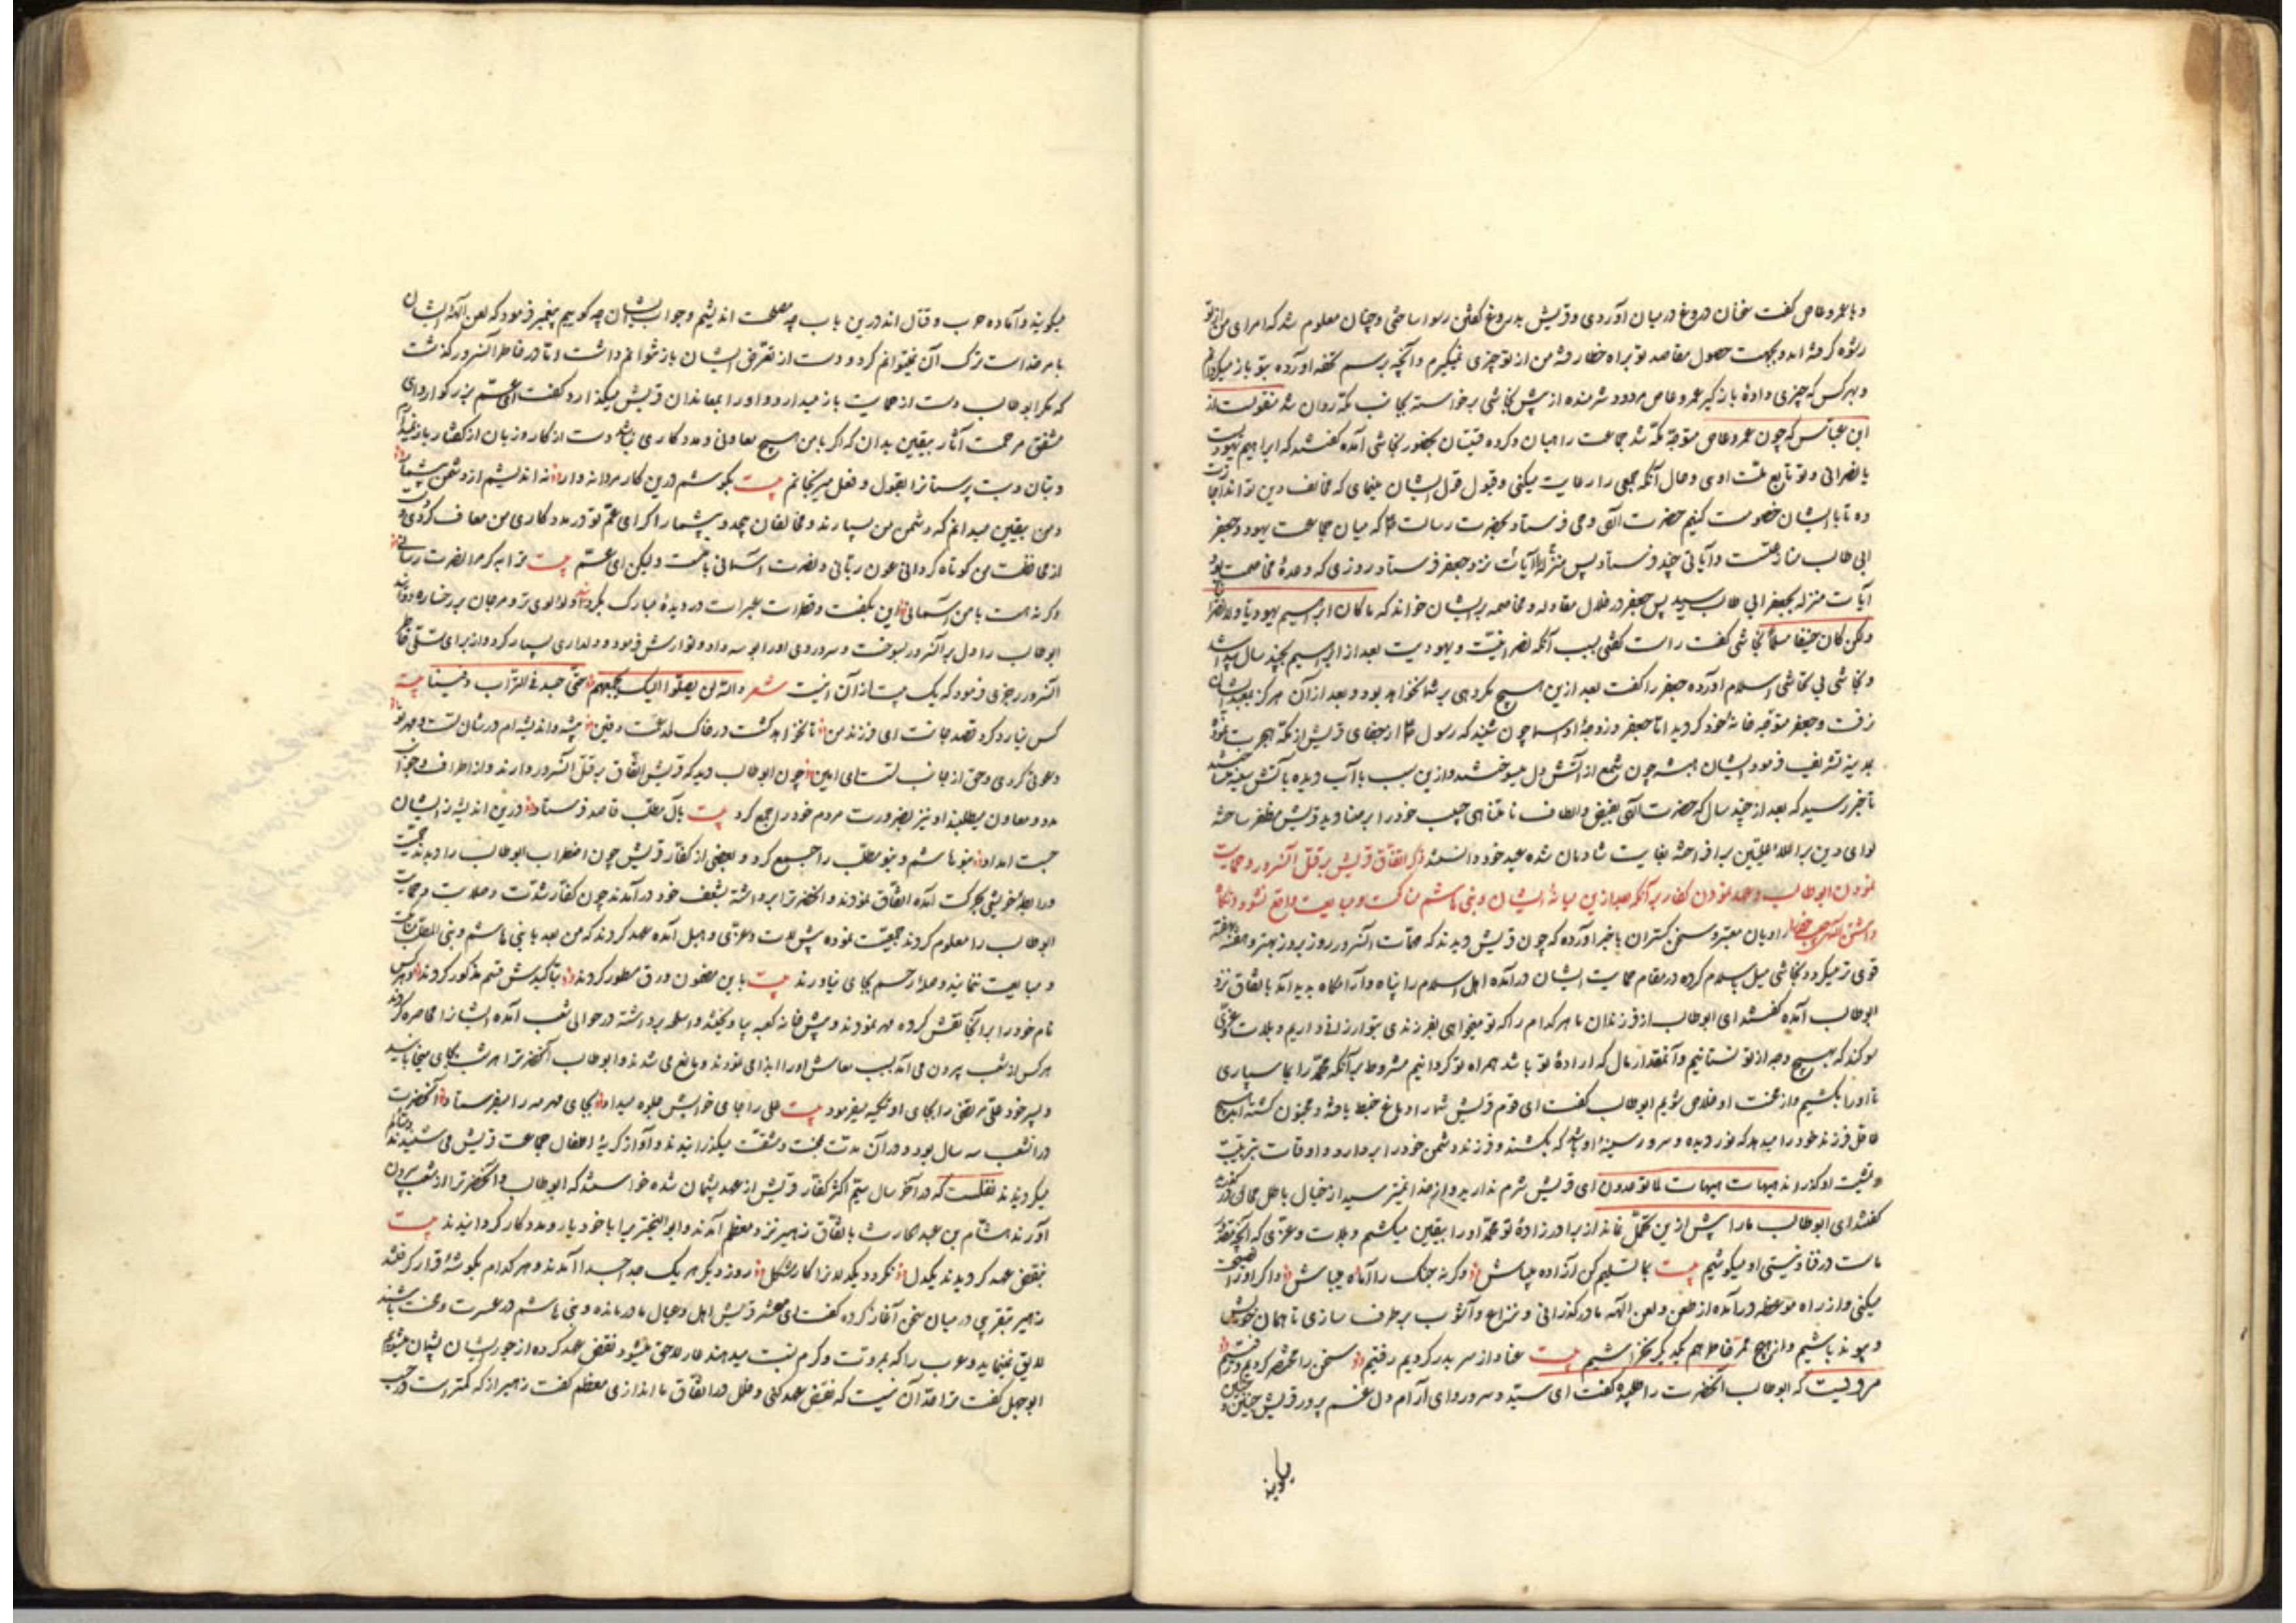 و با عمرو عاص گفت سخنان دروغ در میان آوردی و قریش بدروغ گفتن رسوا ساختی و چنان معلوم شد که امرای من از تو
رشوه گرفته‌اند و بجهت حصول مقاصد تو براه خطا رفته من از تو چیزی نمیگیرم و آنچه برسم تحفه آورده بتو باز میگردانم
و بهر کس که چیزی داده باز گیر عمرو عاص مردود و شرمنده از پیش نجاشی برخواسته بجانب مکه روان شد منقولست از
ابن عباس که چون عمرو عاص متوجه مکه شد جماعت راهبان و کرده قتیبان بحضور نجاشی آمده گفتند که ابراهیم یهودیست
یا نصرانی و تو تابع ملت اوی و حال آنکه جمعی را رعایت میکنی و قبول قول ایشان مینمای که مخالف دین تواند اجازت
ده تا با ایشان خصومت کنیم حضرت الهی وحی فرستاد بحضرت رسالت که میان جماعت یهود و جعفر
ابی طالب منازعتست و آیاتی چند فرستاد پس منزل آیات نزد جعفر فرستاد روزی که وعدهٔ مخاصمت بود
آیات منزله بجعفر ابی طالب رسید پس جعفر در خلال مقاوله و مخاصمه بر ایشان خواند که ما کان ابراهیم یهودیا و لا نصرانیا
ولکن کان حنیفا مسلما نجاشی گفت راست گفتی بسبب آنکه نصرانیت و یهودیت بعد از ابراهیم بچند سال پیدا شد
و نجاشی اسلام آورده جعفر را گفت بعد ازین هیچ مکروهی بر شما نخواهد بود و بعد از آن هرگز بمعبد ایشان
نرفت و جعفر متوجه خانهٔ خود گردید اما جعفر و زوجهٔ او اسما چون شنید که رسول از جفای قریش از مکه هجرت نموده
بمدینه تشریف فرمود ایشان همیشه چون شمع از آتش دل میسوختند و ازین سبب با آب دیده با آتش سینه میساختند
تا خبر رسید که بعد از چند سال که حضرت الهی بفیض و الطاف نامتناهی حبیب خود را بر صنادید قریش مظفر ساخته
لوای دین براعلا علیین برافراخته بغایت شادمان شده عید خود دانستند ذکر اتفاق قریش بر قتل آنسرور و حمایت
نمودن ابوطالب و عهد نمودن کفار بر آنکه بعد ازین میانهٔ ایشان و بنی هاشم مناکحت و مبایعت واقع نشود و نگاه
راویان معتبر و سخن گستران با خبر آورده که چون قریش دیدند که مهمات آنسرور روز بروز بهتر و هفته بهفته
قوی تر میگردد و نجاشی میل باسلام کرده در مقام حمایت ایشان درآمده اهل اسلام را پناه و آرامگاه پدید آمد باتفاق نزد
ابوطالب آمده گفتند ای ابوطالب از فرزندان ما هر کدام را که تو میخواهی بفرزندی بتو ارزانی داریم و بلات و عزی
سوگند که بهیچ وجه از تو نستانیم و آنمقدار مال که ارادهٔ تو باشد همراه تو گردانیم مشروط بر آنکه محمد را بما سپاری
تا او را بکشیم و از محنت او خلاص شویم ابوطالب گفت ای قوم قریش شما را دماغ خبط یافته و مجنون گشته‌اید هیچ
عاقل فرزند خود را میدهد که نور دیده و سرور سینهٔ او باشد که بکشند و فرزند دشمن خود را بردارد و اوقات بتربیت
و تمشیت او گذراند هیهات هیهات لما توعدون ای قریش شرم ندارید و از خدا نمیترسید از خیال باطل محالی
گفتند ای ابوطالب ما را پیش ازین تحمل نماند از برادرزادهٔ تو محمد او را بیقین میکشیم و بلات و عزی که آنچه مقدور
ماست در فنا و نیستی او میکوشیم بیت بما تسلیم کن آزاده میباش وگرنه جنگ را آماده میباش و اگر او را نصیحت
میکنی و از راه موعظه درآمده از طعن و لعن الهه ما درگذرانی و نزاع و آشوب برطرف سازی تا همان خویش
و پیوند باشیم و از هیچ ممر خاطر هم یکدیگر نخراشیم بیت عناد از سر بدر کردیم رفتیم سخن را مختصر کردیم و رفتیم
مرویست که ابوطالب آنحضرت را طلبیده گفت ای سید و سرور و ای آرام دل غم پرور قریش چنین
میگویند
میگویند و آماده حرب و قتال‌اند درین باب چه مصلحت اندیشیم و جواب ایشان چه گوییم پیغمبر فرمود که لعن آلهه ایشان
بامر خداست ترک آن نمیتوانم کرد و دست از تعرض ایشان باز نتوانم داشت اما در خاطر آنسرور گذشت
که مگر ابوطالب دست از حمایت باز میدارد و او را بمعاندان قریش میگذارد گفت ای عم بزرگوار و ای
مشفق مرحمت آثار بیقین بدان که اگر با من هیچ معاونی و مددکاری نباشد دست از کار و زبان از گفتار باز نمیدارم
و بتان و بت پرستانرا بقول و فعل میرنجانم بیت بکوشم درین کار مردانه وار نه اندیشم از دشمن بیشمار
و من بیقین میدانم که دشمن من بسیارند و مخالفان بیحد و بیشمار اگر ای عم تو در مددکاری من معاف کردی و
از محافظت من کوتاه گردانی عون ربانی و نصرت آسمانی با ماست ولیکن ای عم بیت ترا به گر مرا نصرت رسانی
وگرنه هست با من آسمانی این بگفت و قطرات عبرات در دیدهٔ مبارک بگردانید و لؤلؤی تر و مرجان بر رخساره دواند
ابوطالب را دل بر آنسرور بسوخت و سر و روی او را بوسه داد و نوازش فرمود و دلداری بسیار کرد و از برای تسلی خاطر
آنسرور رجزی فرمود که یک بیت از آن اینست شعر والله لن یصلوا الیک بجمعهم حتی اوسد فی التراب دفینا بیت
کس نیارد کرد قصد جانت ای فرزند من تا نخواهد گشت در خاک لحد عمت دفین
دعوی کردی و حق از جانب تست ای امین چون ابوطالب دید که قریش اتفاق بر قتل آنسرور دارند و از اطراف و جوانب
مدد و معاون میطلبند او نیز بضرورت مردم خود را جمع کرد بیت بآل مطلب قاصد فرستاد درین اندیشه زایشان
جست امداد بنو هاشم و بنو مطلب را جمیع کرد و بعضی از کفار قریش چون اضطراب ابوطالب را دیدند حمیت
و رابطهٔ خویشی بحرکت آمده اتفاق نمودند و آنحضرترا برداشته بشعب خود درآمدند چون کفار شدت و صلابت و حمایت
ابوطالب را معلوم کردند جمعیت نموده پیش لات و عزی و هبل آمده عهد کردند که من بعد با بنی هاشم و بنی المطلب مناکحت
و مبایعت ننمایند و صلهٔ رحم بجای نیاورند بیت باین مضمون ورق مسطور کردند بتاکیدش قسم مذکور کردند و هر کس
نام خود را بر آنجا نقش کرده مهر نمودند و پیش خانه کعبه بیاویختند و اسلحه برداشته در حوالی شعب آمده ایشانرا محاصره کردند
هر کس از شعب بیرون می‌آمد بسبب معاش او را ایذا می‌نمودند و مانع می‌شدند و ابوطالب آنحضرترا هر شب بجای میخوابانید
و پسر خود علی مرتضی را بجای او تکیه میفرمود بیت علی را جای خوابش جلوه میداد بجای مهر مه را میفرستاد آنحضرت
در آنشعب سه سال بود و در آن مدت بمحنت و مشقت میگذرانیدند و آواز گریهٔ اطفال جماعت قریش می شنیدند
میگردیدند نقلست که در آخر سال سیم اکثر کفار قریش از عهد پشیمان شده خواستند که ابوطالب و آنحضرترا از شعب بیرون
آورند هشام بن عبد الحارث باتفاق زهیر نزد معظم آمدند و ابو البختر را با خود یار و مددکار گردانیدند بیت
بنقض عهد گردیدند یکدل نگردد یکدلانرا کار مشکل روز دیگر هر یک جداجدا آمدند و هر کدام بگوشهٔ قرار گرفتند
زهیر بتقریبی در میان سخن آغاز کرده گفت ای معشر قریش اهل و عیال ما در مانده و بنی هاشم در عسرت و محنت باشند
لایق نمینماید و عرب را که بمروت و کرم نسبت میدهند عار لاحق میشود نقض عهد کرده از جور ایشان پشیمان میشویم
ابوجهل گفت ترا حد آن نیست که نقض عهد کنی و خلل در اتفاق ما اندازی معظم گفت زهیر از که کمتر است در